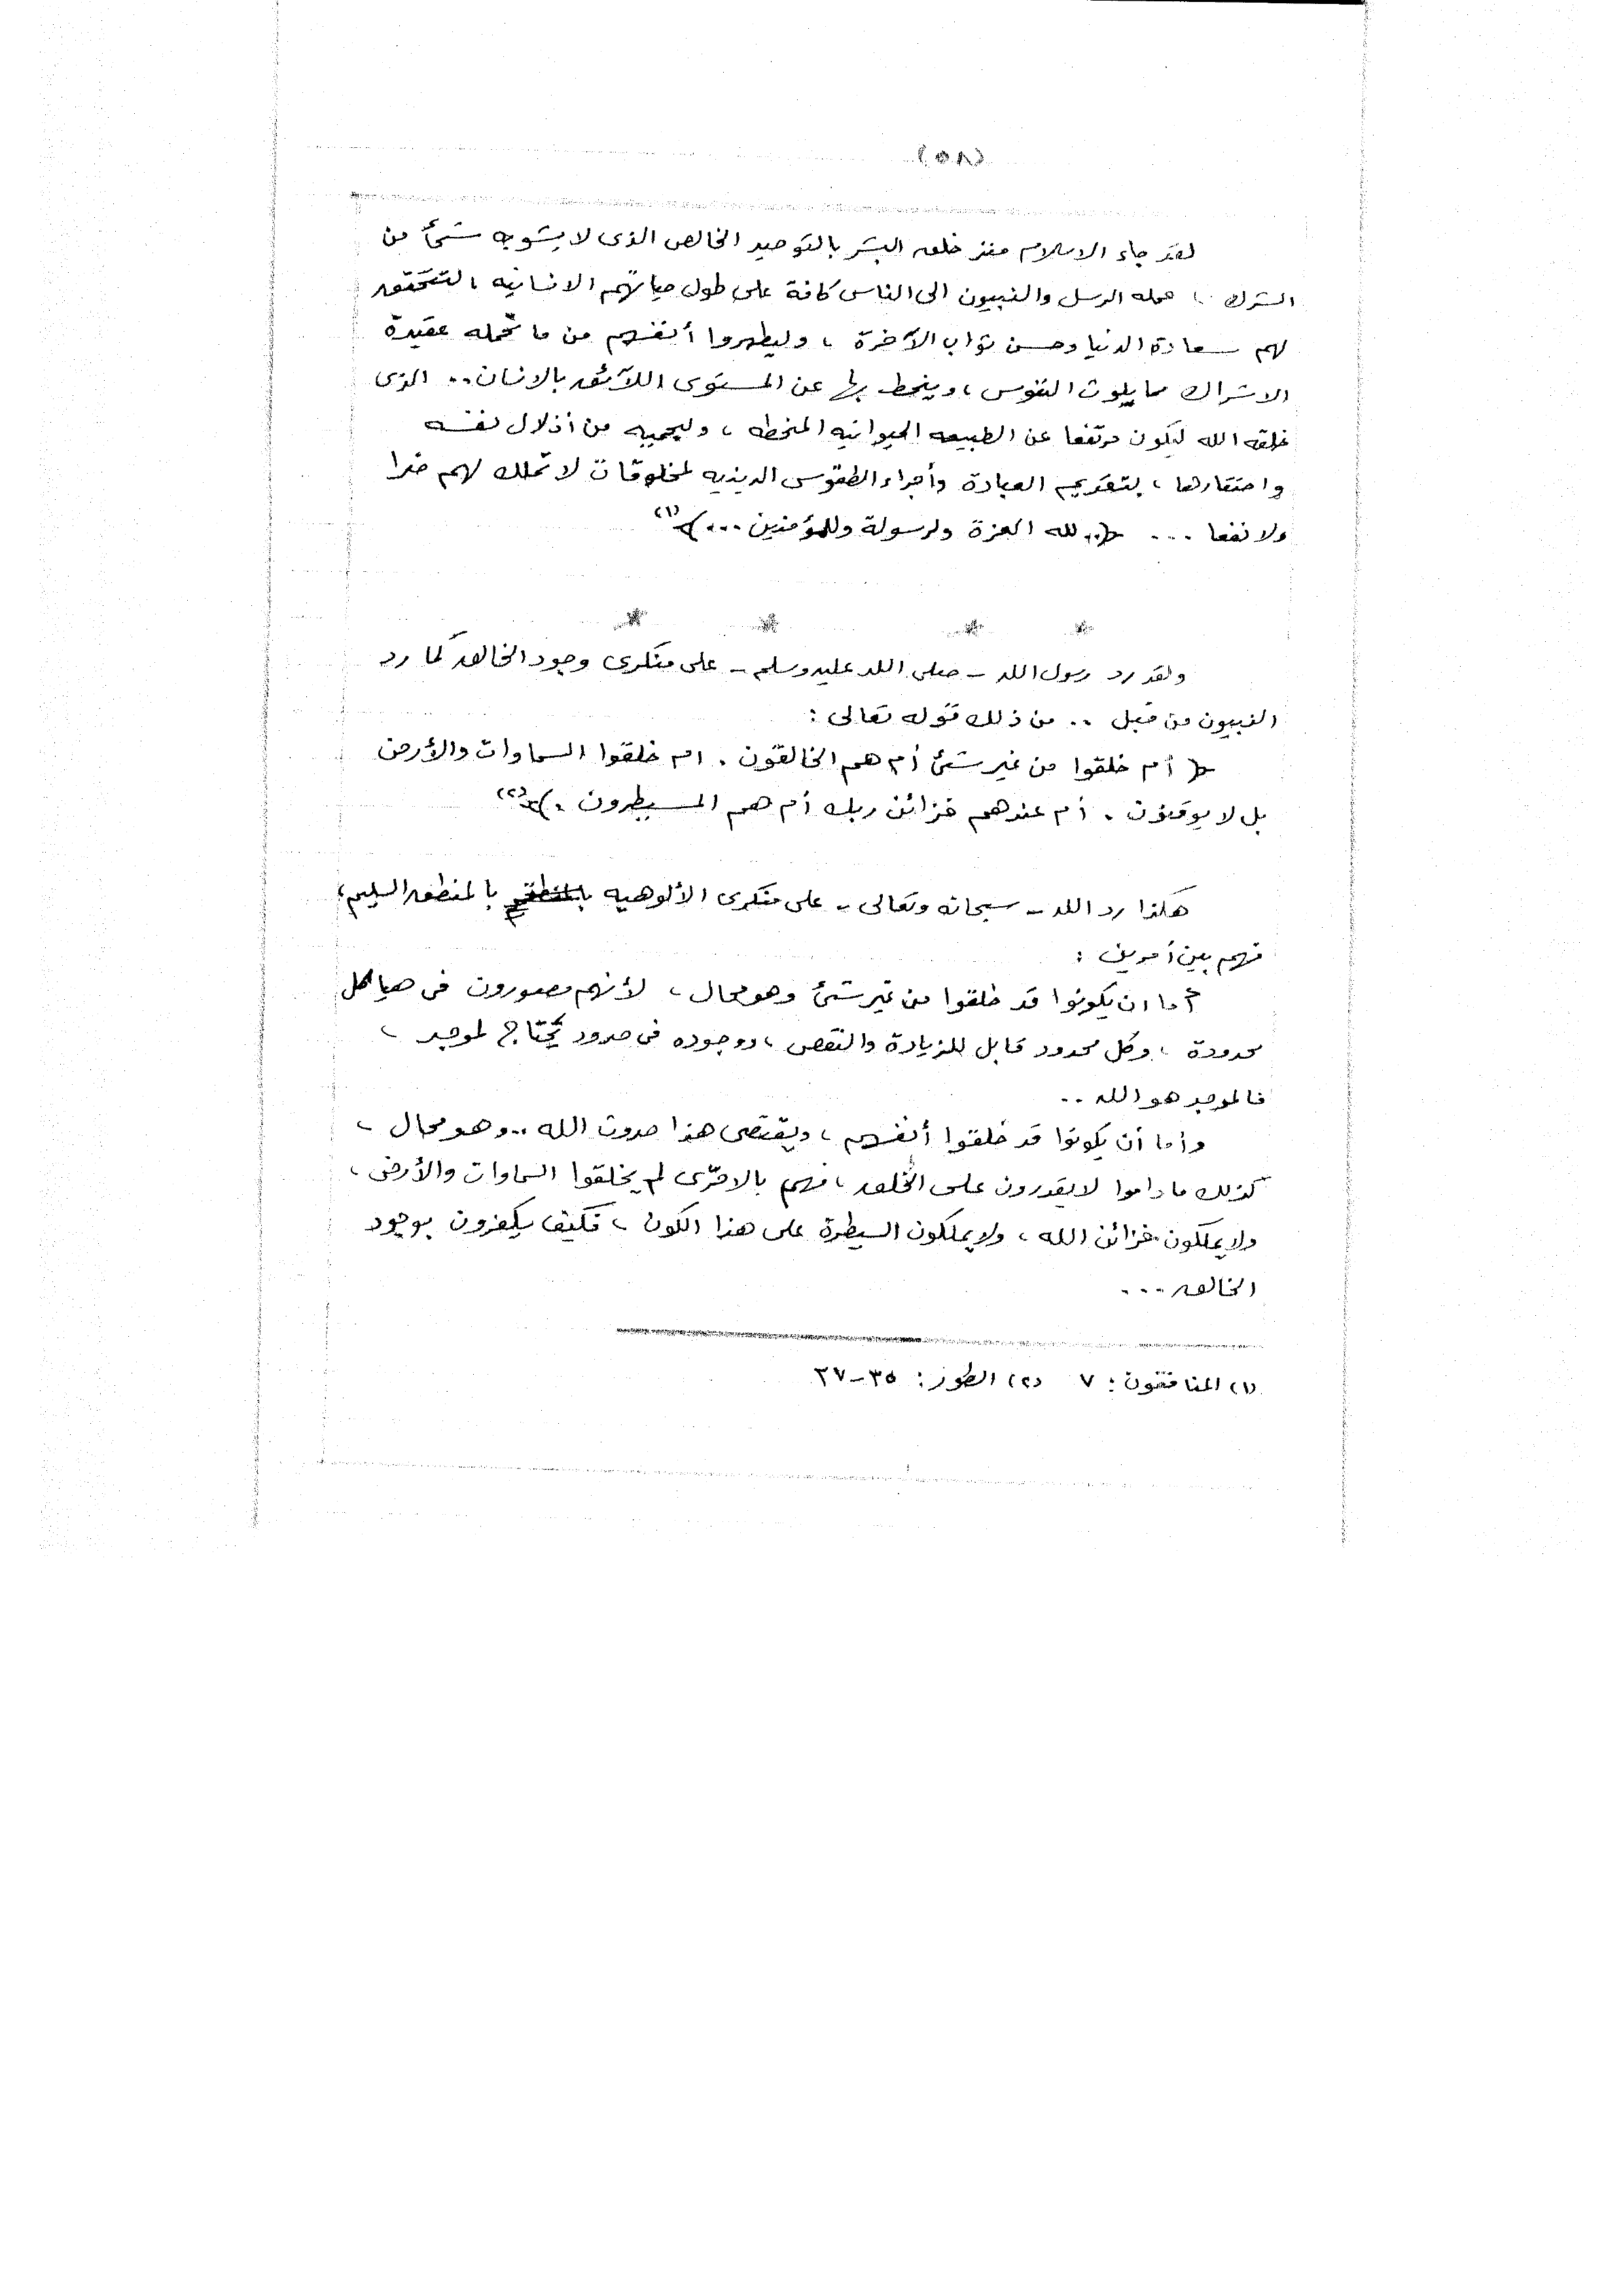 (٥٨)
لقد جاء الاسلام منذ خلق البشر بالتوحيد الخالص الذى لا يشوبه شئ من
الشرك ، حمله الرسل والنبيون الى الناس كافة على طول حياتهم الانسانيه ، لتتحقق
لهم سعادة الدنيا وحسن ثواب الآخرة ، وليطهروا أنفسهم من ما تحمله عقيدة
الاشراك مما يلوث النفوس ، وينحط بها عن المستوى اللآئق بالانسان .. الذى
خلقه الله ليكون مرتفعا عن الطبيعه الحيوانيه المنحطه ، وليحميه من أذلال نفسه
واحتقارها ، بتقديم العبادة وأجراء الطقوس الدينيه لمخلوقات لا تملك لهم ضرا
ولا نفعا ... ﴿.. لله العزة ولرسولة وللمؤمنين ...﴾ (١)
* * * *
ولقد رد رسول الله - صلى الله عليه وسلم - على منكرى وجود الخالق كما رد
النبيون من قبل .. من ذلك قوله تعالى :
﴿ أم خلقوا من غير شئ أم هم الخالقون . ام خلقوا السماوات والأرض
بل لا يوقنون . أم عندهم خزائن ربك أم هم المسيطرون .﴾ (٢)
هكذا رد الله - سبحانه وتعالى - على منكرى الألوهيه بالمنطق السليم ،
فهم بين أمرين :
أما ان يكونوا قد خلقوا من غير شئ وهو محال ، لأنهم مصورون فى هياكل
محدودة ، وكل محدود قابل للزيادة والنقص ، ووجوده فى حدود يحتاج لموجد ،
فالموجد هو الله ..
وأما أن يكونوا قد خلقوا أنفسهم ، ويقتضى هذا حدوث الله .. وهو محال ،
كذلك ماداموا لا يقدرون على الخلق ، فهم بالاحرى لم يخلقوا السماوات والأرض ،
ولا يملكون خزائن الله ، ولا يملكون السيطرة على هذا الكون ، فكيف يكفرون بوجود
الخالق ...
(١) المنافقون : ٧ (٢) الطور : ٣٥-٣٧